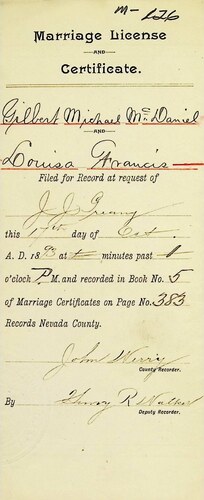 m- 226
Marriage License
AND
Certificate.
Gilbert Michael McDaniel
AND
Louisa Francis
Filed for Record at request of
J. J.
this 17th day of Oct.
A. D. 1893 at minutes past 1
o'clock P. M. and recorded in Book No. 5
of Marriage Certificates on Page No. 383
Records Nevada County.
John Werry
County Recorder.
By Henry R Walker
Deputy Recorder.